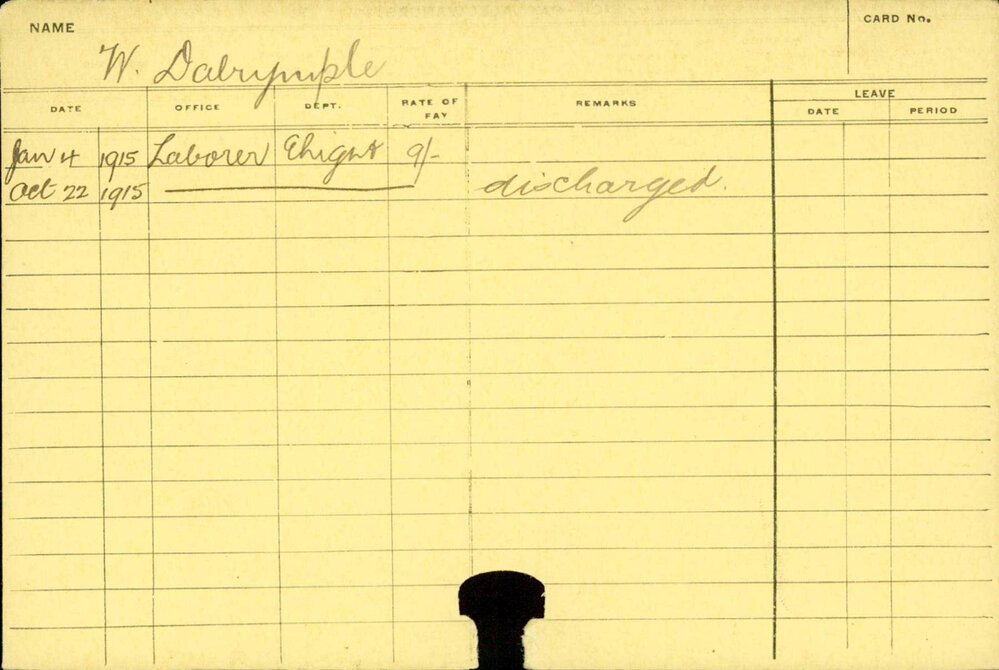 NAME
CARD No.
W. Dalrymple
DATE OFFICE DEPT. RATE OF PAY REMARKS LEAVE
DATE PERIOD
Jan 4 1915 Laborer 9/-
Oct 22 1915 discharged.